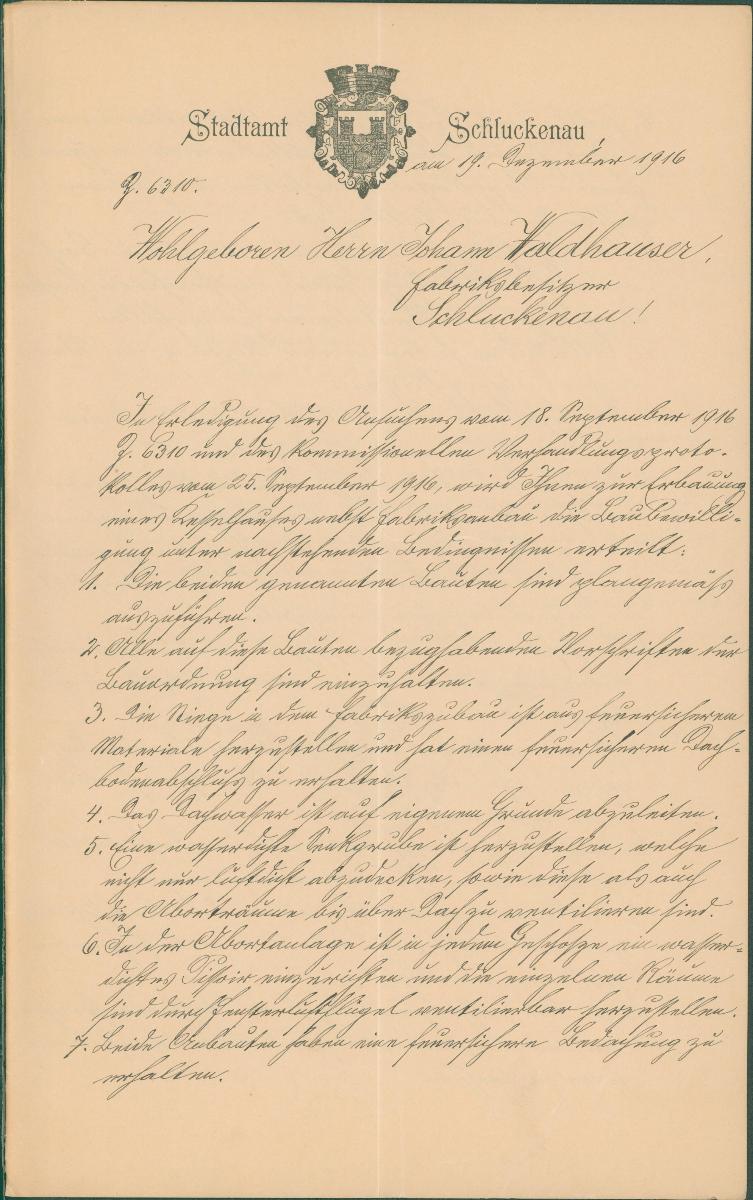 Stadtamt Schluckenau,
am 19. Dezember 1916
Z. 6310.
Wohlgeboren Herrn Johann Waldhauser,
Fabriksbesitzer
Schluckenau!
In Erledigung des Ansuchens vom 18. September 1916
Z. 6310 und des kommissionellen Verhandlungsproto-
kolles vom 25. September 1916, wird Ihnen zur Erbauung
eines Kesselhauses nebst Fabriksanbau die Baubewilli-
gung unter nachstehenden Bedingnissen erteilt:
1. Die beiden genannten Bauten sind plangemäss
auszuführen.
2. Alle auf diese Bauten bezughabenden Vorschriften der
Bauordnung sind einzuhalten.
3. Die Stiege in dem Fabrikszubau ist aus feuersicherem
Materiale herzustellen und hat einen feuersicheren Dach-
bodenabschluss zu erhalten.
4. Das Dachwasser ist auf eigenem Grunde abzuleiten.
5. Eine wasserdichte Senkgrube ist herzustellen, welche
nicht nur luftdicht abzudecken, sowie diese als auch
die Aborträume bis über Dach zu ventilieren sind.
6. In der Abortanlage ist in jedem Geschosze ein wasser-
dichtes Pissoir einzurichten und die einzelnen Räume
sind durch Fensterluftflügel ventilierbar herzustellen.
7. Beide Anbauten haben eine feuersichere Bedachung zu
erhalten.